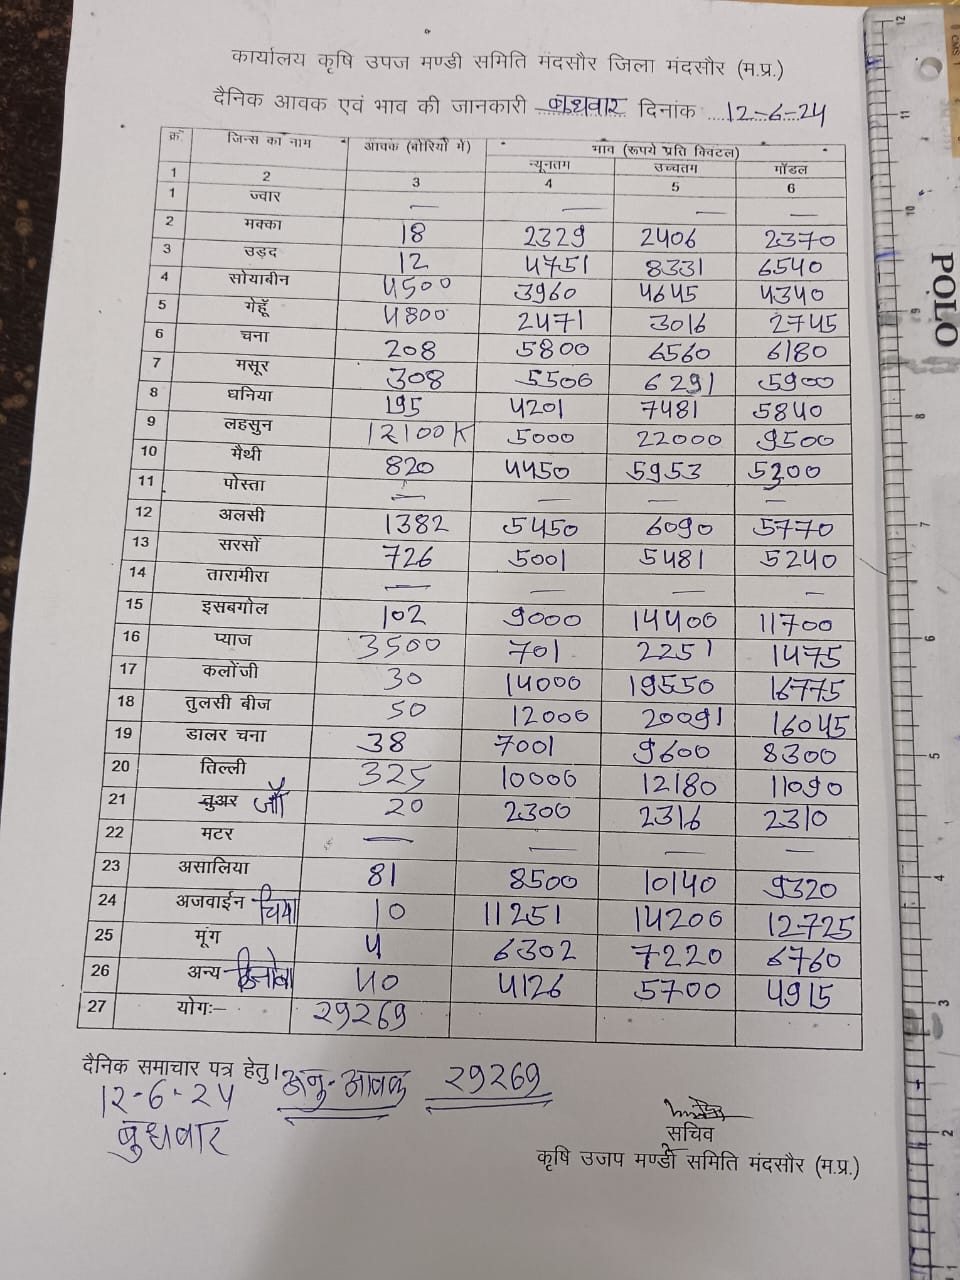 कार्यालय कृषि उपज मण्डी समिति मंदसौर जिला मंदसौर (म.प्र.)
दैनिक आवक एवं भाव की जानकारी बुधवार दिनांक 12-6-24
क्रं जिन्स का नाम आवक (बोरियों में) भाव (रूपये प्रति क्विंटल)
न्यूनतम उच्चतम मॉडल
1 2 3 4 5 6
1 ज्वार — — — —
2 मक्का 18 2329 2406 2370
3 उड़द 12 4751 8331 6540
4 सोयाबीन 4500 3960 4645 4340
5 गेहूँ 4800 2471 3016 2745
6 चना 208 5800 6560 6180
7 मसूर 308 5506 6291 5900
8 धनिया 195 4201 7481 5840
9 लहसुन 12100 K 5000 22000 9500
10 मैथी 820 4450 5953 5200
11 पोस्ता — — — —
12 अलसी 1382 5450 6090 5770
13 सरसों 726 5001 5481 5240
14 तारामीरा — — — —
15 इसबगोल 102 9000 14400 11700
16 प्याज 3500 701 2251 1475
17 कलोंजी 30 14000 19550 16775
18 तुलसी बीज 50 12000 20091 16045
19 डालर चना 38 7001 9600 8300
20 तिल्ली 325 10000 12180 11090
21 तुअर जौ 20 2300 2316 2310
22 मटर — — — —
23 असालिया 81 8500 10140 9320
24 अजवाईन चिया 10 11251 14200 12725
25 मूंग 4 6302 7220 6760
26 अन्य 40 4126 5700 4915
27 योगः– 29269
दैनिक समाचार पत्र हेतु। अनु-आवक 29269
12-6-24
बुधवार
सचिव
कृषि उजप मण्डी समिति मंदसौर (म.प्र.)
POLO